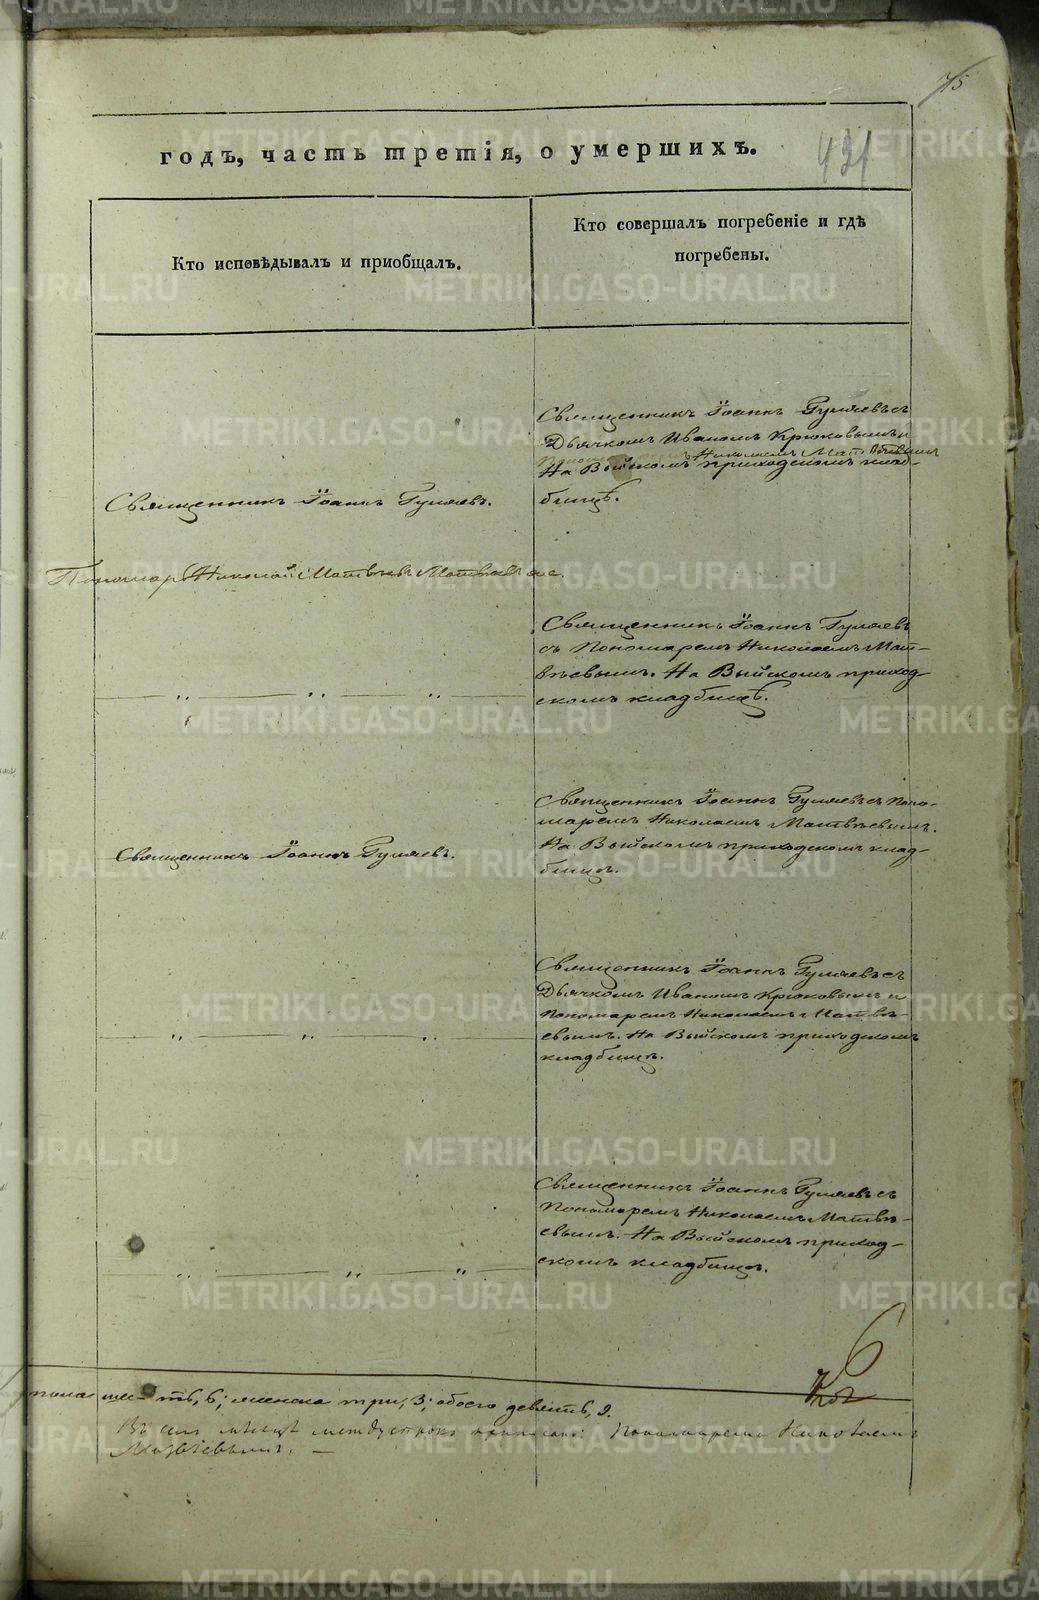 75
годъ, часть третія, о умершихъ.
421
Кто исповѣдывалъ и пріобщалъ.
Кто совершалъ погребеніе и гдѣ
погребены.
Священникъ Іоаннъ Гуляевъ съ
Дьячкомъ Иваномъ Крюковымъ и
Пономаремъ Николаемъ Матвѣевымъ
На Выйскомъ приходскомъ клад-
бищѣ.
Священникъ Іоаннъ Гуляевъ.
Пономарь Николай Матвѣевъ
Священникъ Іоаннъ Гуляевъ
съ Пономаремъ Николаемъ Мат-
вѣевымъ. На Выйскомъ приход-
скомъ кладбищѣ.
Священникъ Іоаннъ Гуляевъ съ Поно-
маремъ Николаемъ Матвѣевымъ.
На Выйскомъ приходскомъ клад-
бищѣ.
Священникъ Іоаннъ Гуляевъ.
Священникъ Іоаннъ Гуляевъ съ
Дьячкомъ Иваномъ Крюковымъ и
Пономаремъ Николаемъ Матвѣ-
евымъ. На Выйскомъ приходскомъ
кладбищѣ.
Священникъ Іоаннъ Гуляевъ съ
Пономаремъ Николаемъ Матвѣ-
евымъ. На Выйскомъ приход-
скомъ кладбищѣ.
пола шесть, 6; женска три, 3; обоего девять, 9.
Въ семъ мѣсяцѣ между строкъ приписано: Пономаремъ Николаемъ
Матвѣевымъ. —
METRIKI.GASO-URAL.RU